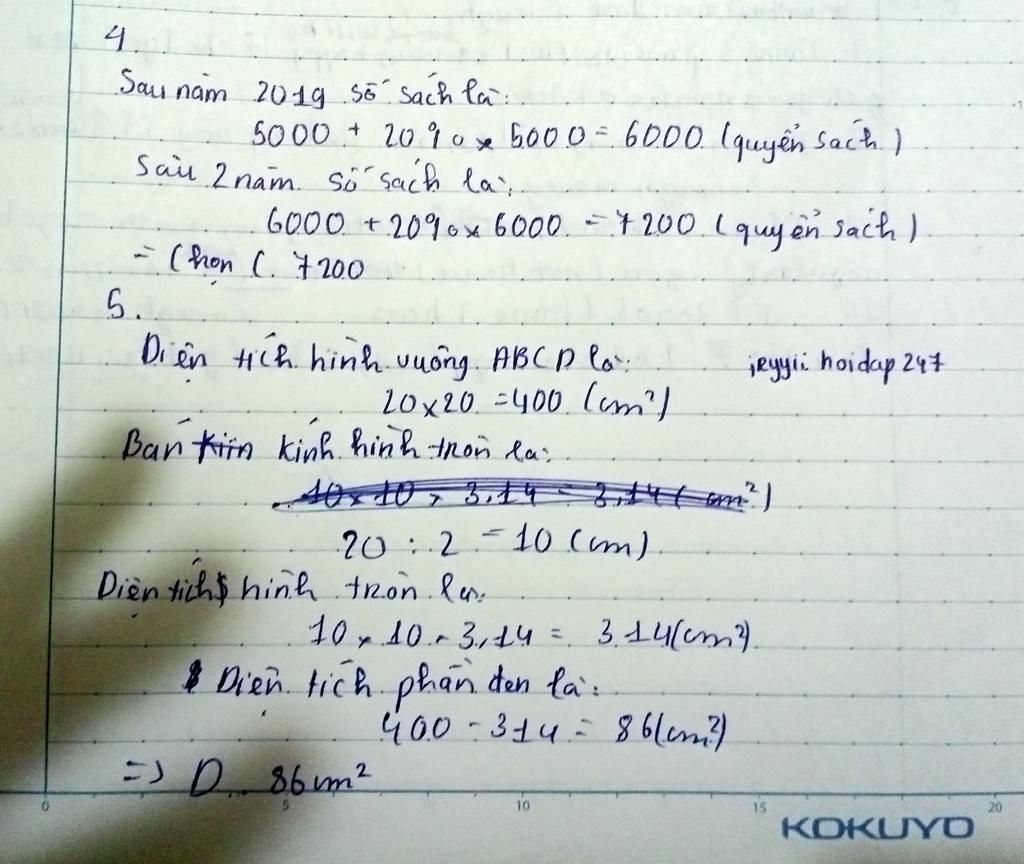 4
Sau năm 2019 số sách là:
5000 + 20% x 5000 = 6000 (quyển sách)
Sau 2 năm số sách là:
6000 + 20% x 6000 = 7200 (quyển sách)
= Chọn C 7200
5.
Diện tích hình vuông ABCD là:
jeyyii hoidap247
20 x 20 = 400 (cm²)
Bán kính hình tròn là:
10 x 10 x 3,14 = 3,14 (cm²)
20 : 2 = 10 (cm)
Diện tích hình tròn là:
10 x 10 x 3,14 = 314 (cm²)
Diện tích phần đen là:
400 - 314 = 86 (cm²)
=> D 86 cm²
0 5 10 15 20
KOKUYO